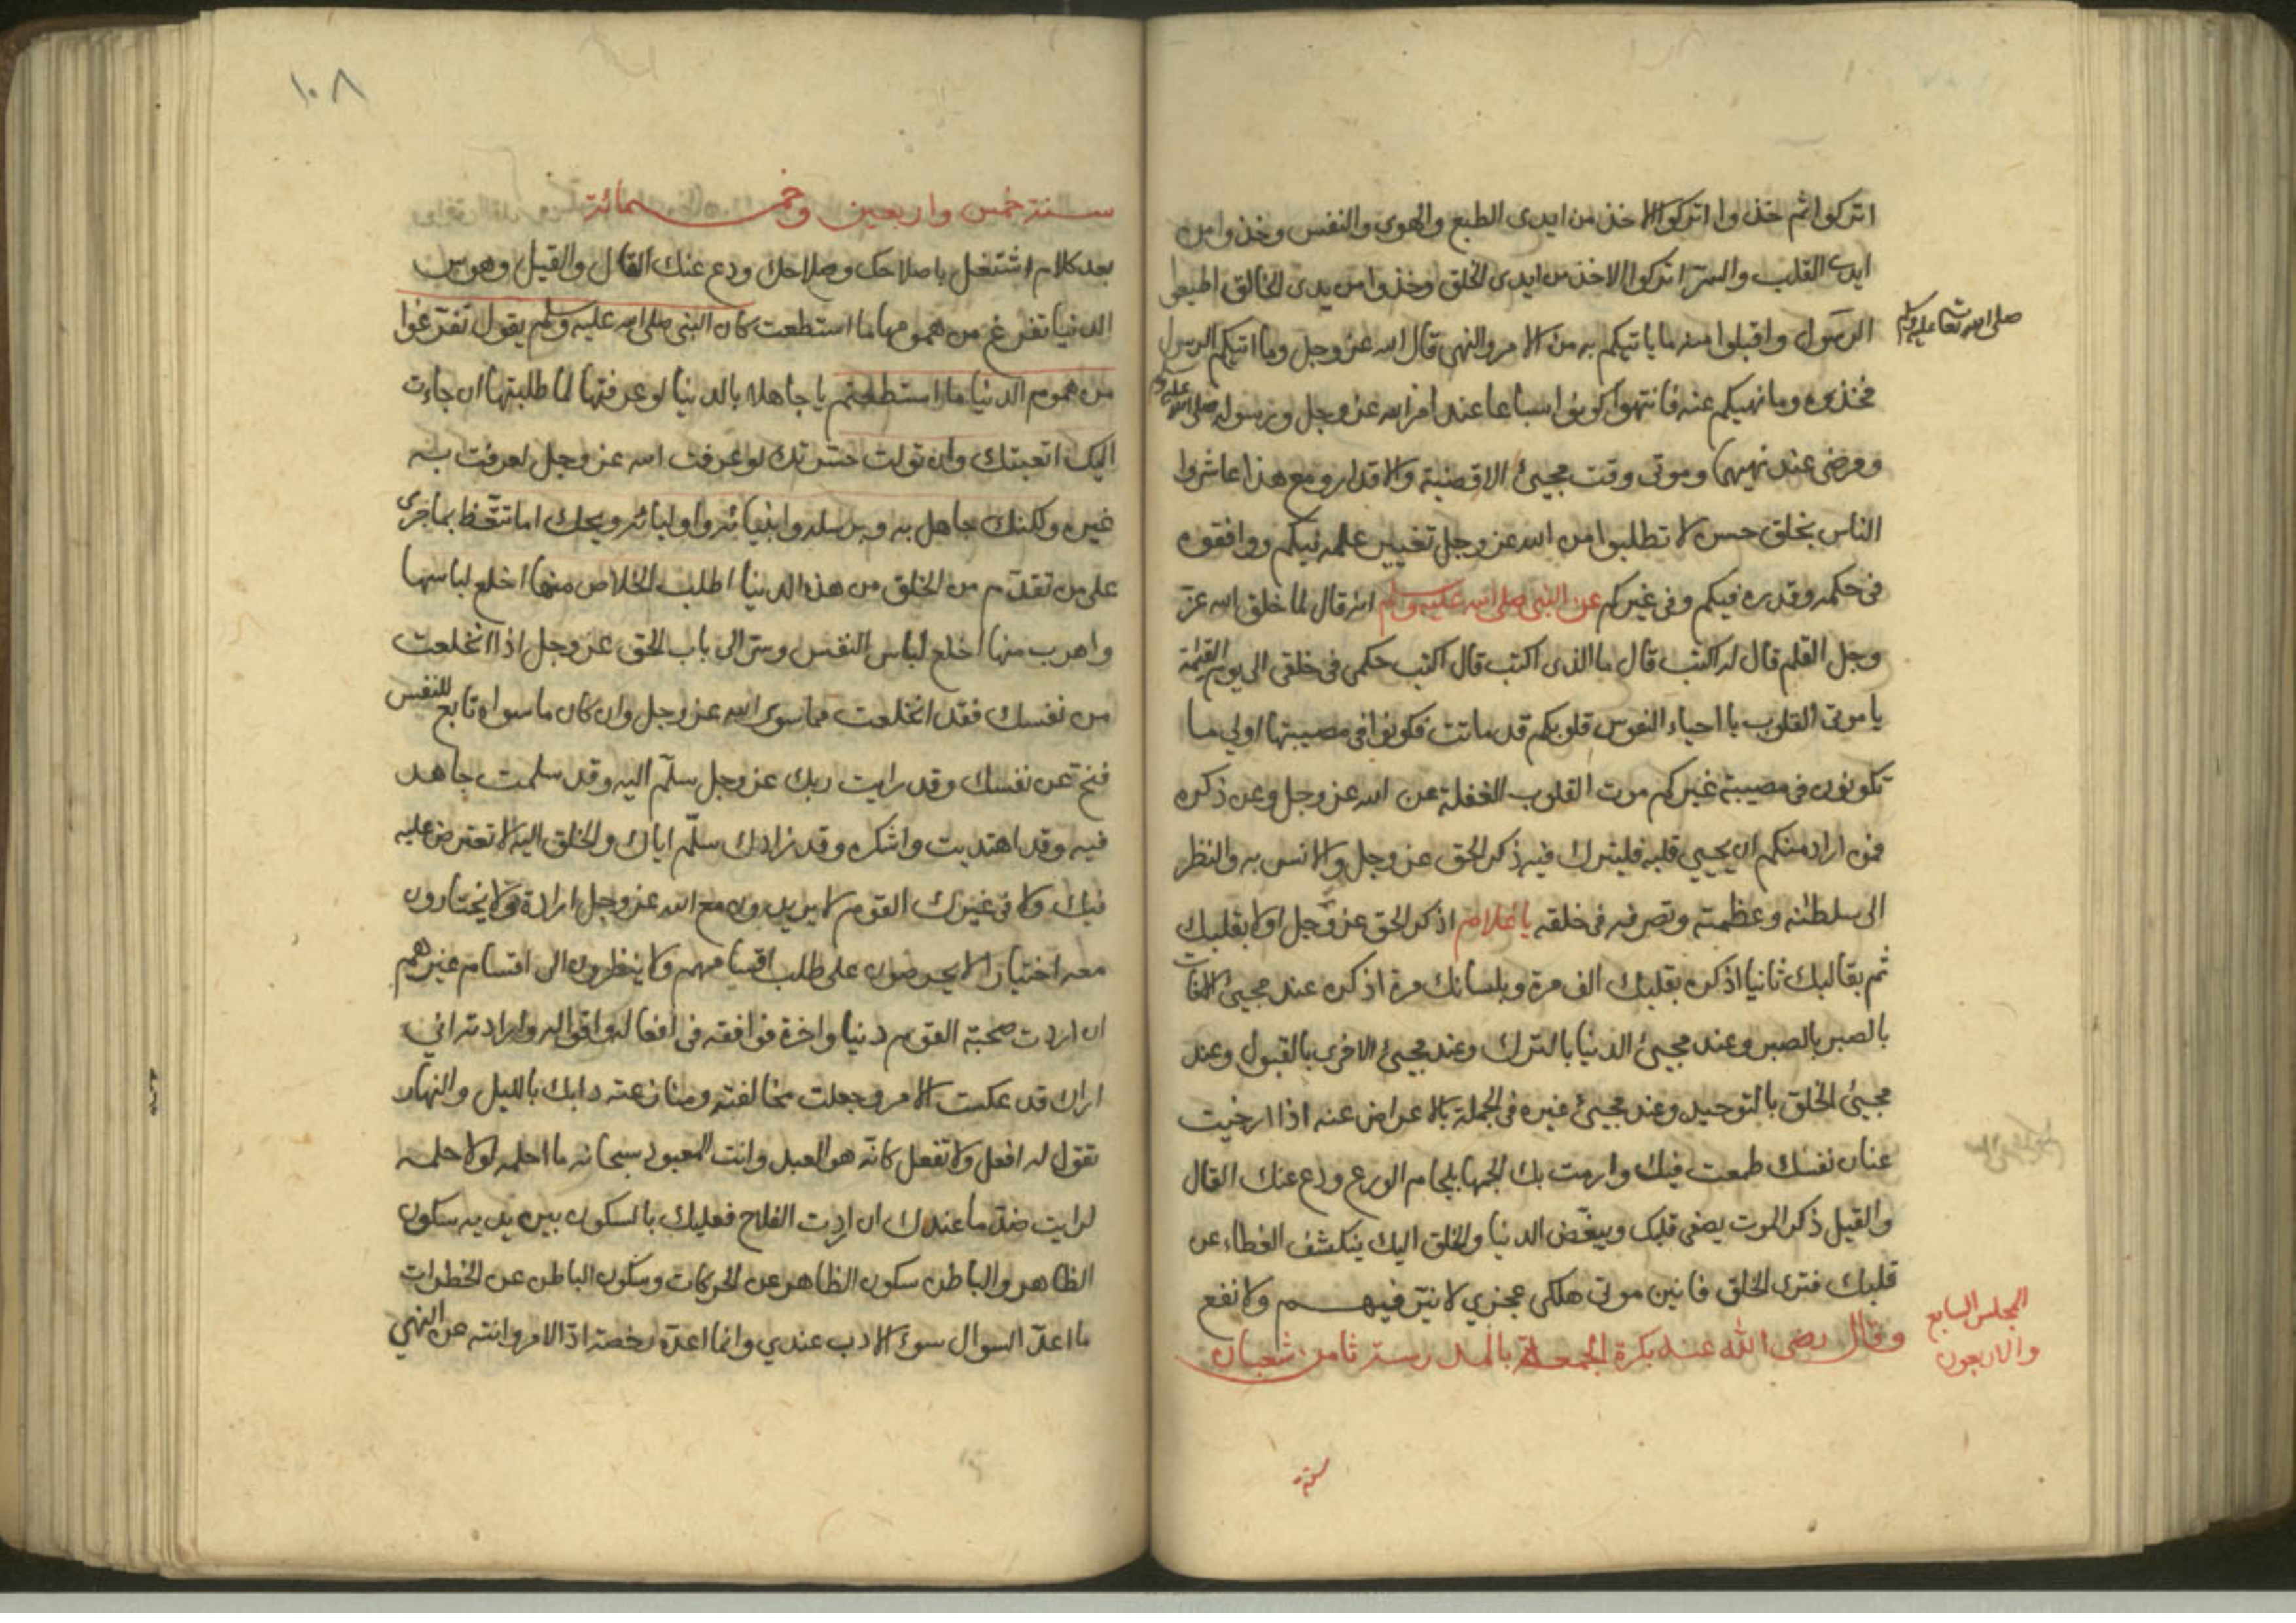 اتركوا ثم خذوا اتركوا الاخذ من ايدى الطبع والهوى والنفس وخذوا من
ايدى القلب والسر اتركوا الاخذ من ايدى الخلق وخذوا من يدى الخالق اطيعوا
الرسول واقبلوا منه ما ياتيكم به من الامر والنهى قال الله عز وجل وما اتيكم الرسول
صلى الله تعا عليه وسلم
فخذوه وما نهيكم عنه فانتهوا كونوا سباعا عند امر الله عز وجل ورسوله صلى الله عليه وسلم
ومرضى عند نهيهما وموتى وقت مجيئ الاقضية والاقدار ومع هذا عاشروا
الناس بخلق حسن لا تطلبوا من الله عز وجل تغيير علمه فيكم ووافقوه
فى حكمه وقدره فيكم وفى غيركم عن النبى صلى الله عليه وسلم انه قال لما خلق الله عز
وجل القلم قال له اكتب قال ما الذى اكتب قال اكتب حكمى فى خلقى الى يوم القيمة
يا موتى القلوب يا احياء النفوس قلوبكم قد ماتت فكونوا فى مصيبتها اولى ما
تكونون فى مصيبة غيركم موت القلوب الغفلة عن الله عز وجل وعن ذكره
فمن اراد منكم ان يحيى قلبه فليترك فيه ذكر الحق عز وجل والانس به والنظر
الى سلطنته وعظمته وتصرفه فى خلقه يا غلام اذكر الحق عز وجل اولا بقلبك
ثم بقالبك ثانيا اذكره بقلبك الف مرة وبلسانك مرة اذكره عند مجيئ الافات
بالصبر بالصبر وعند مجيئ الدنيا بالترك وعند مجيئ الاخرى بالقبول وعند
مجيئ الخلق بالتوحيد وعند مجيئ غيره فى الجملة بالاعراض عنه اذا ارخيت
عنان نفسك طمعت فيك وارمت بك الجمها بلجام الورع ودع عنك القال
والقيل ذكر الموت يصفى قلبك ويبغض الدنيا والخلق اليك ينكشف الغطاء عن
قلبك فترى الخلق فانين موتى هلكى عجزى لا ضر فيهم ولا نفع
المجلس السابع
والاربعون
وقال رضى الله عنه بكرة الجمعة بالمدرسة ثامن شعبان
سنة
١٠٨
سنة خمس واربعين وخمسمائة
بعد كلام اشتغل باصلاحك وصلاحك ودع عنك القال والقيل وهوس
الدنيا تفرغ من همومها ما استطعت كان النبى صلى الله عليه وسلم يقول تفرغوا
من هموم الدنيا ما استطعتم يا جاهلا بالدنيا لو عرفتها لما طلبتها ان جاءت
اليك اتعبتك وان تولت حسرتك لو عرفت الله عز وجل لعرفت به
غيره ولكنك جاهل به وبرسله وانبيائه واوليائه ويحك اما تتعظ بما جرى
على من تقدم من الخلق من هذه الدنيا اطلب الخلاص منها اخلع لباسها
واهرب منها اخلع لباس النفس وسر الى باب الحق عز وجل اذا انخلعت
من نفسك فقد انخلعت مما سوى الله عز وجل وان كان ما سواه تابع للنفس
فنح عن نفسك وقد رايت ربك عز وجل سلم اليه وقد سلمت جاهد
فيه وقد اهتديت واشكره وقد زادك سلم اياك والخلق اليه لا تعترض عليه
فيك ولا فى غيرك القوم لا يريدون مع الله عز وجل ارادة ولا يختارون
معه اختيارا لا يحرصون على طلب اقسامهم ولا ينظرون الى اقسام غيرهم
ان اردت صحبة القوم دنيا واخرة فوافقه فى افعاله واقواله وارادته انى
اراك قد عكست الامر وجعلت مخالفته ومنازعته دابك بالليل والنهار
تقول له افعل ولا تفعل كانه هو العبد وانت المعبود سبحانه ما احلمه لولا حلمه
لرايت ضد ما عندك ان اردت الفلاح فعليك بالسكون بين يديه سكون
الظاهر والباطن سكون الظاهر عن الحركات وسكون الباطن عن الخطرات
ما اعد السوال سوء الادب عندي وانما اعده رخصة اد الامر وانته عن النهي